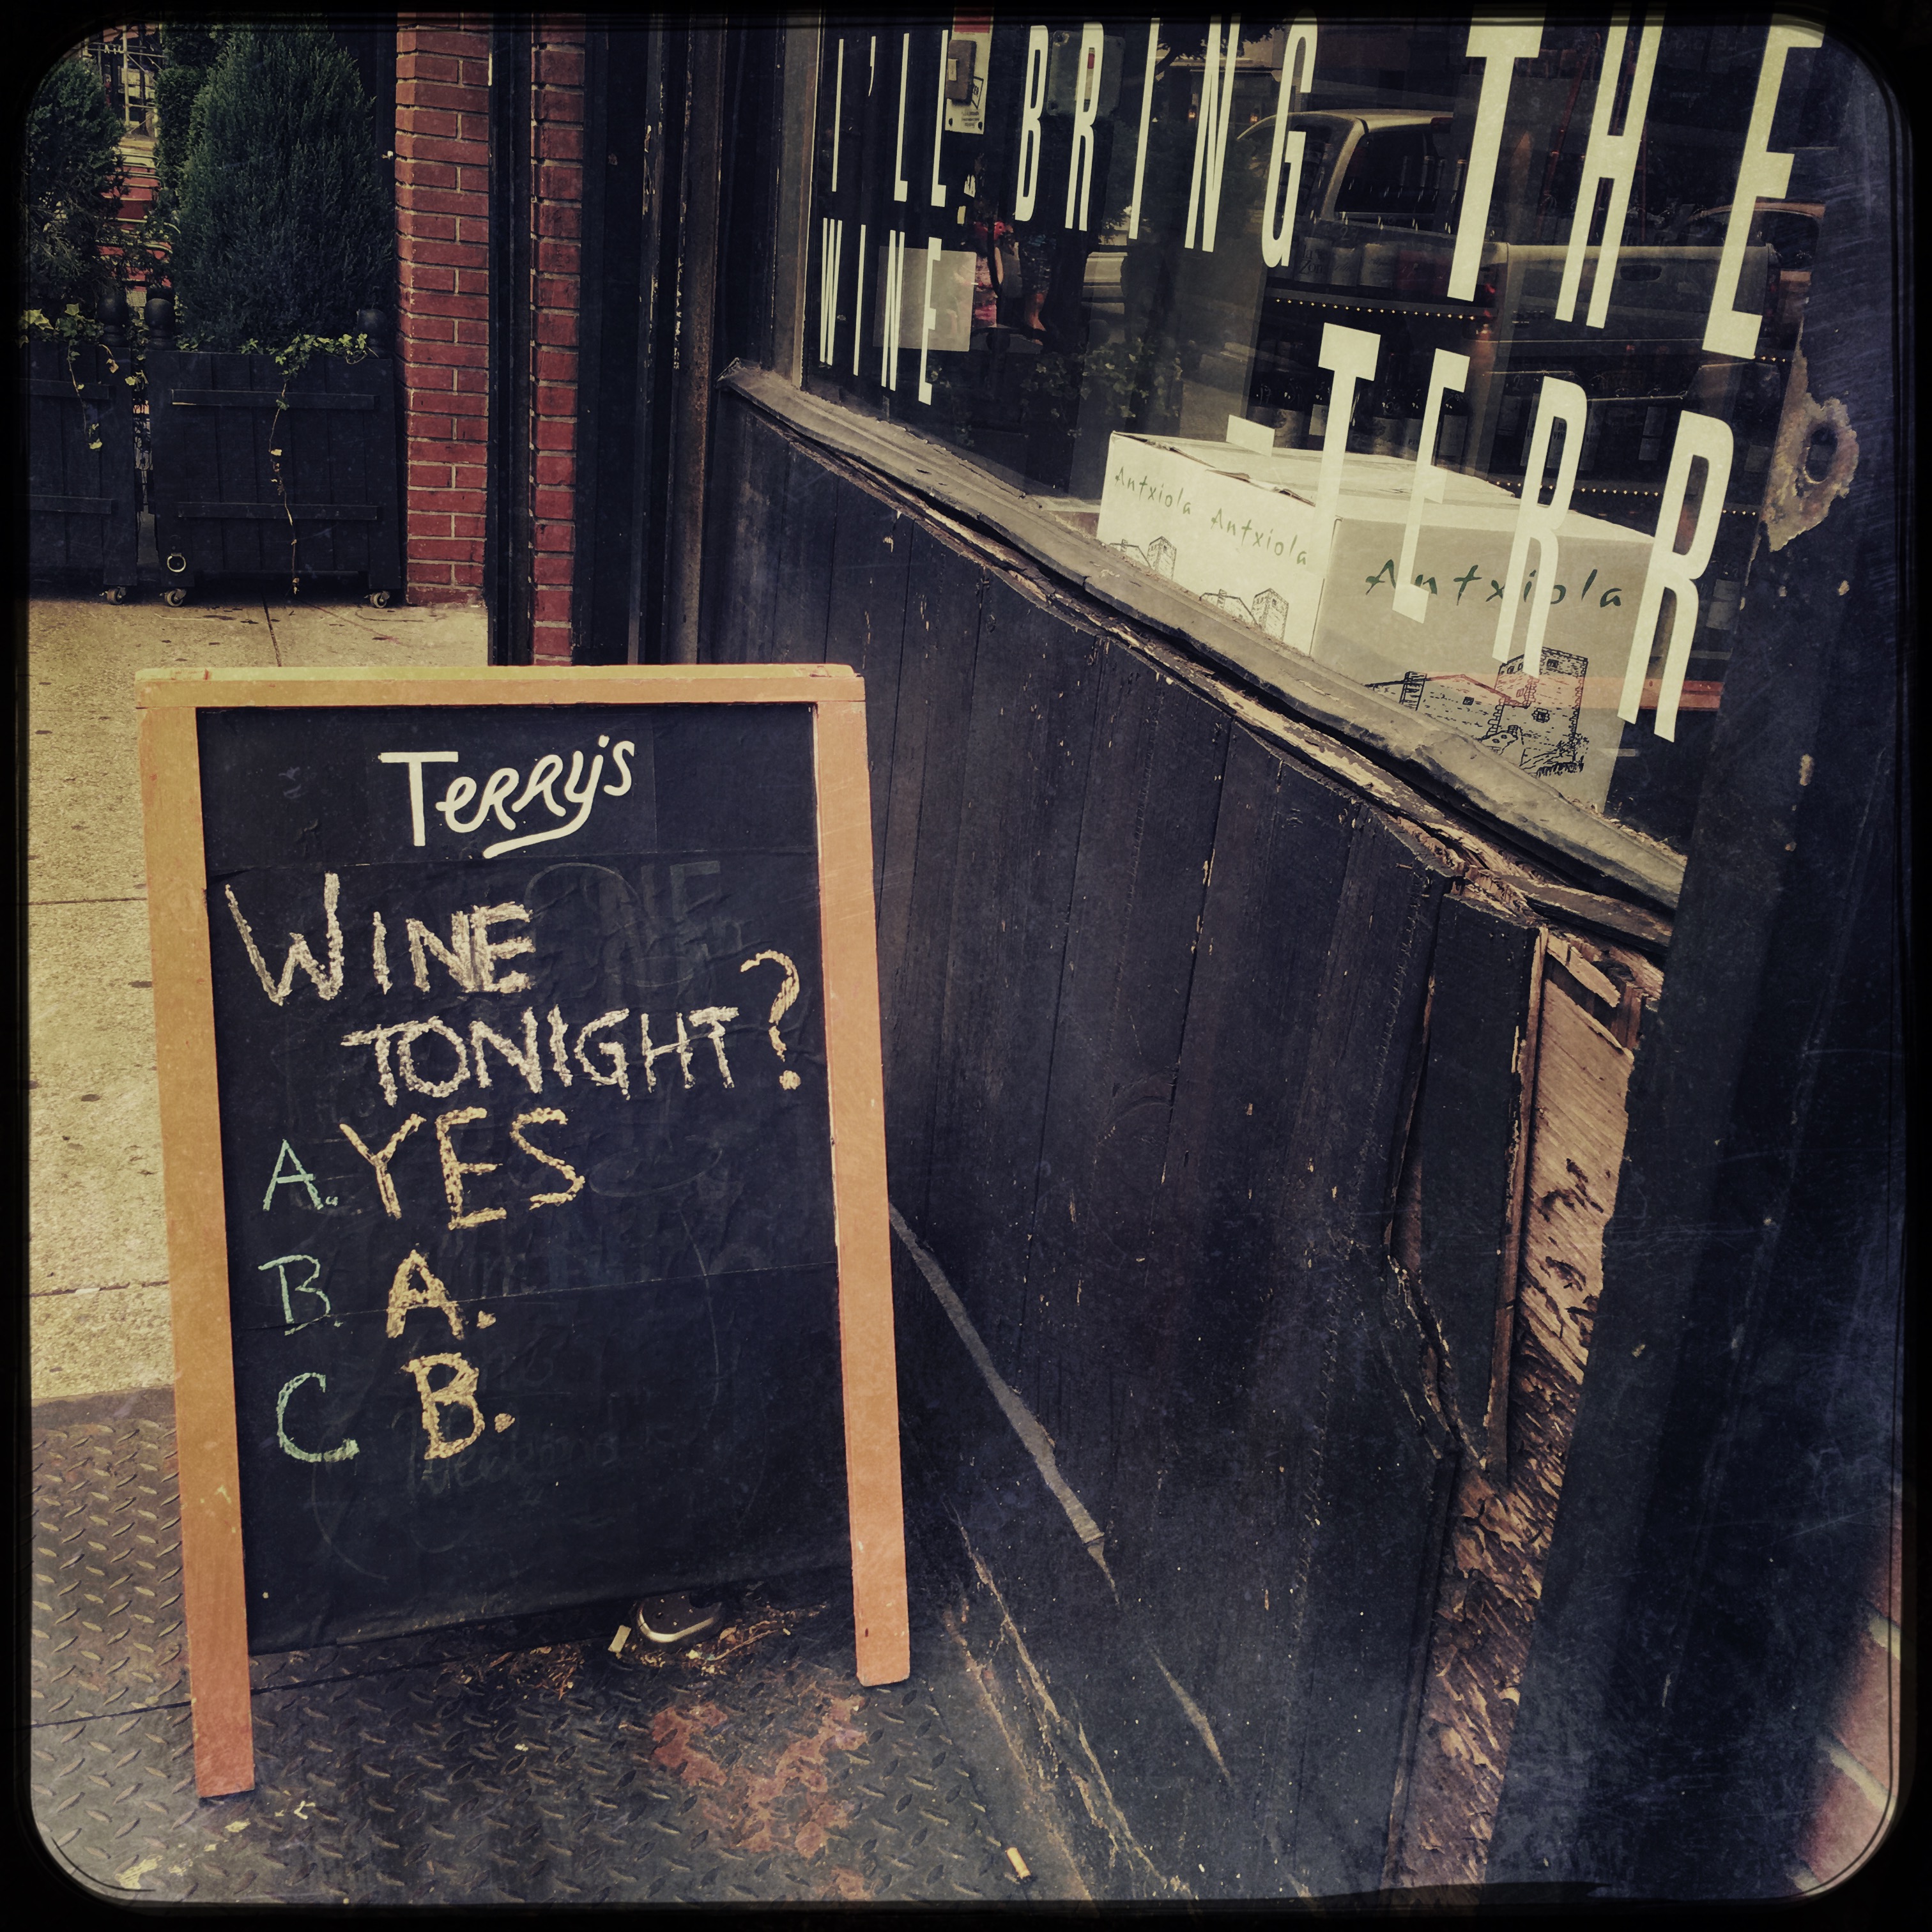 I'LL BRING THE
WINE
-TERR
Antxiola Antxiola
Antxiola
Terry's
WINE
TONIGHT?
A. YES
B. A.
C B.